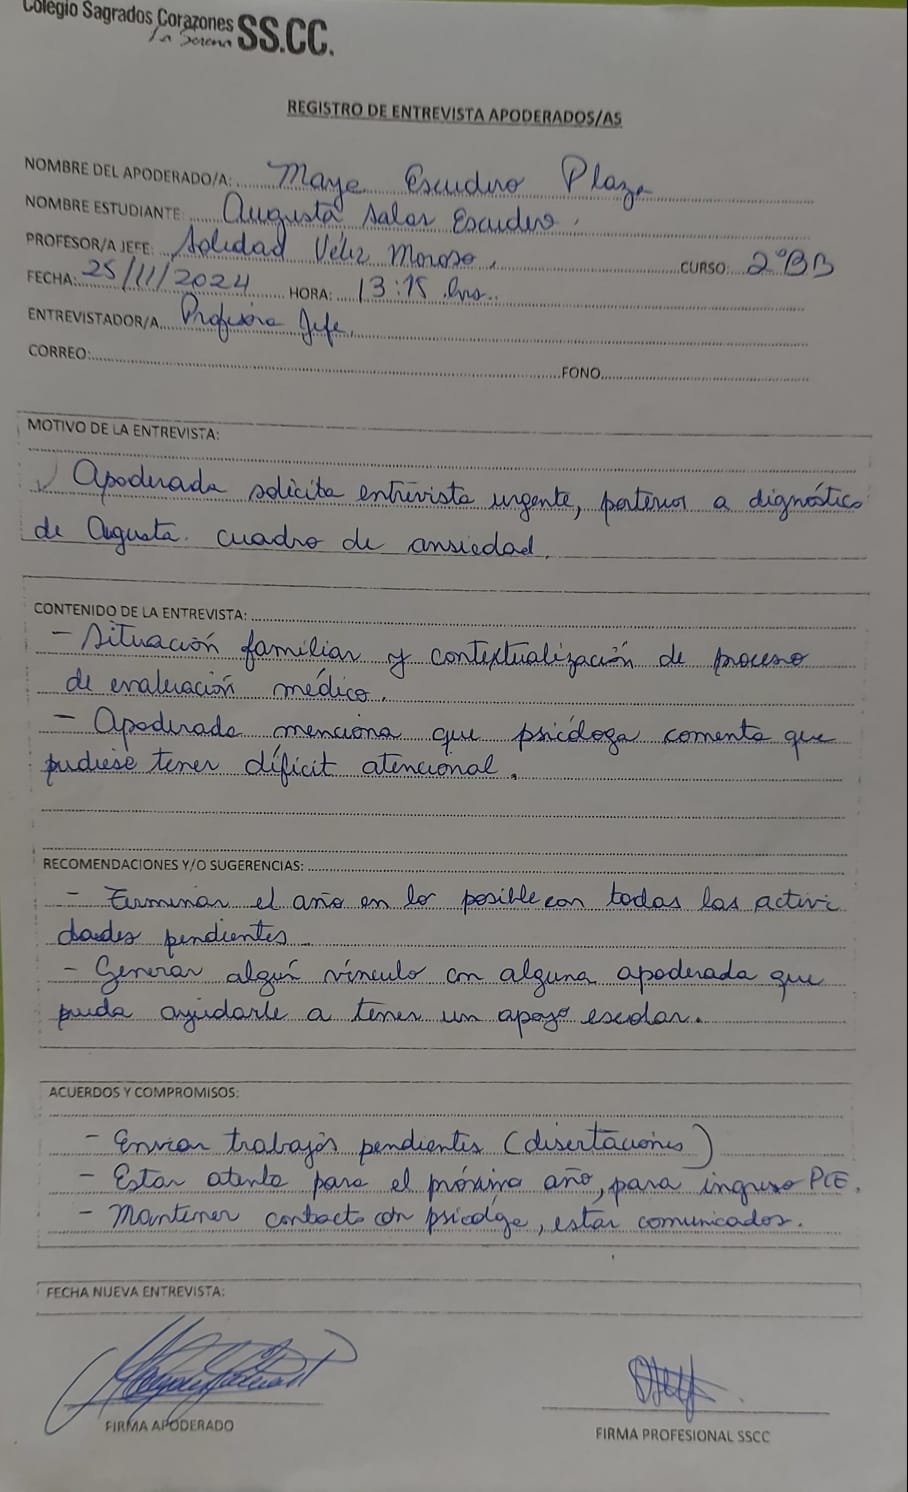 Colegio Sagrados Corazones SS.CC.
La Serena
REGISTRO DE ENTREVISTA APODERADOS/AS
NOMBRE DEL APODERADO/A: Maye Escudero Plaza
NOMBRE ESTUDIANTE: Augusta Salas Escudero.
PROFESOR/A JEFE: Soledad Véliz Moroso. CURSO: 2°BB
FECHA: 25/11/2024 HORA: 13:15 hrs.
ENTREVISTADOR/A Profesora Jefe.
CORREO: FONO
MOTIVO DE LA ENTREVISTA:
✓ Apoderada solicita entrevista urgente, posterior a diagnóstico
de Augusta. cuadro de ansiedad.
CONTENIDO DE LA ENTREVISTA:
- Situación familiar y contextualización de proceso
de evaluación médico.
- Apoderada menciona que psicóloga comenta que
pudiese tener déficit atencional.
RECOMENDACIONES Y/O SUGERENCIAS:
- Terminar el año en lo posible con todas las activi
dades pendientes.
- Generar algún vínculo con alguna apoderada que
pueda ayudarle a tener un apoyo escolar.
ACUERDOS Y COMPROMISOS:
- Enviar trabajos pendientes (disertaciones)
- Estar atenta para el próximo año, para ingreso PIE.
- Mantener contacto con psicóloga, estar comunicados.
FECHA NUEVA ENTREVISTA:
FIRMA APODERADO
FIRMA PROFESIONAL SSCC